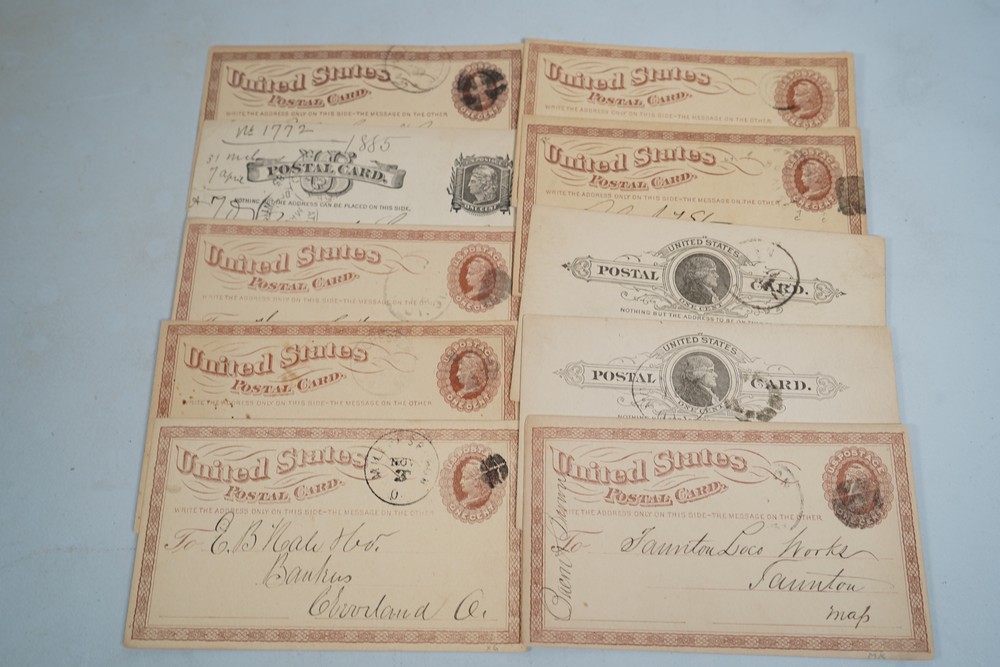 United States
POSTAL CARD.
WRITE THE ADDRESS ONLY ON THIS SIDE-THE MESSAGE ON THE OTHER
No 1772
1885
31 Mch
7 apre
U.S.
POSTAL CARD.
NOTHING BUT THE ADDRESS CAN BE PLACED ON THIS SIDE.
ONE CENT
U.S. POSTAGE
United States
POSTAL CARD.
WRITE THE ADDRESS ONLY ON THIS SIDE-THE MESSAGE ON THE OTHER
ONE CENT
United States
POSTAL CARD.
WRITE THE ADDRESS ONLY ON THIS SIDE-THE MESSAGE ON THE OTHER
U.S. POSTAGE
ONE CENT
United States
POSTAL CARD.
WRITE THE ADDRESS ONLY ON THIS SIDE-THE MESSAGE ON THE OTHER
NOV
3
U.S. POSTAGE
ONE CENT
To E. B. Hale &Co.
Bankers
Cleveland O.
United States
POSTAL CARD.
WRITE THE ADDRESS ONLY ON THIS SIDE-THE MESSAGE ON THE OTHER
United States
POSTAL CARD.
WRITE THE ADDRESS ONLY ON THIS SIDE-THE MESSAGE ON THE OTHER
UNITED STATES
POSTAL CARD.
ONE CENT
NOTHING BUT THE ADDRESS TO BE ON
UNITED STATES
POSTAL CARD.
ONE CENT
United States
POSTAL CARD.
WRITE THE ADDRESS ONLY ON THIS SIDE-THE MESSAGE ON THE OTHER
U.S. POSTAGE
ONE CENT
To Taunton Loco Works
Taunton
Mass